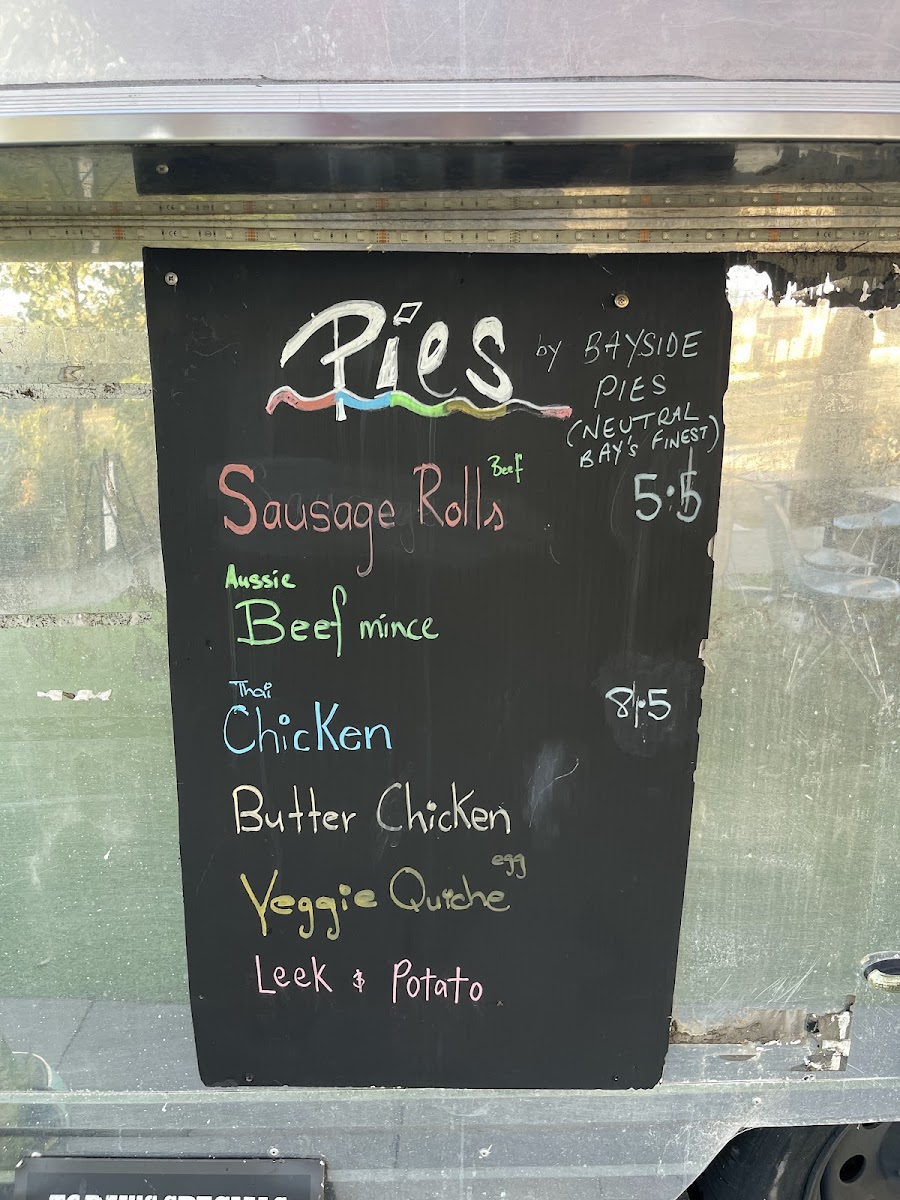 Pies by BAYSIDE
PIES
(NEUTRAL
BAY'S FINEST)
Sausage Rolls Beef 5:5
Aussie
Beef mince
Thai
Chicken 8.5
Butter Chicken
egg
Veggie Quiche
Leek & Potato